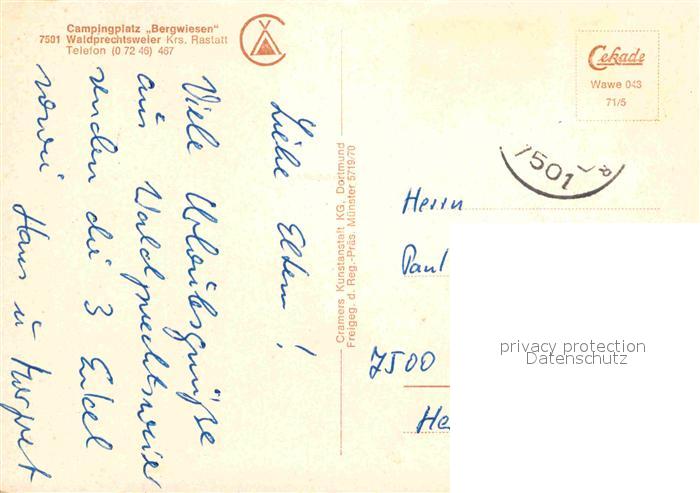 Campingplatz „Bergwiesen"
7501 Waldprechtsweier Krs. Rastatt
Telefon (0 72 46) 467
Cekade
Wawe 043
71/5
7501
Liebe Eltern!
Viele Urlaubsgrüße
aus Waldprechtsweier
senden die 3 Enkel
sowie Hans u Margret
Cramers Kunstanstalt KG, Dortmund
Freigeg. d. Reg.-Präs. Münster 5719/70
Herrn
Paul
7500
He
privacy protection
Datenschutz